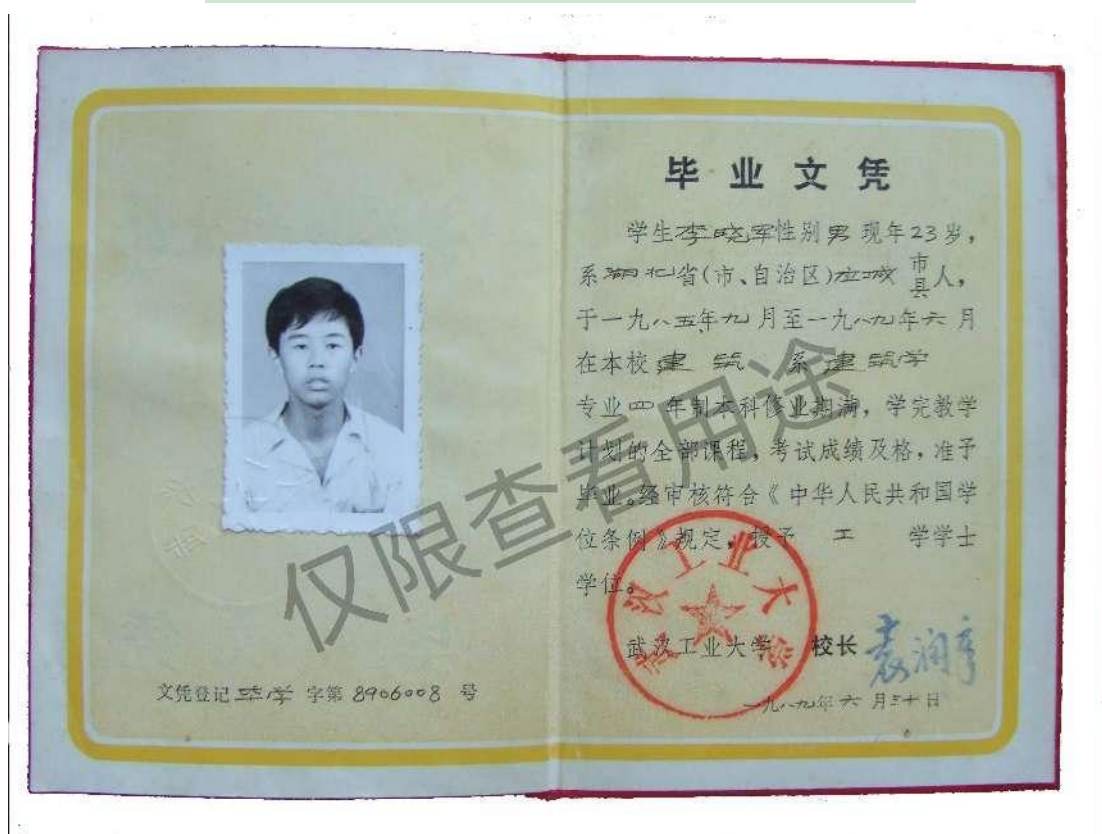 毕业文凭
学生李晓军性别男现年23岁，
系湖北省(市、自治区)应城市县人，
于一九八五年九月至一九八九年六月
在本校建筑系建筑学
专业四年制本科修业期满，学完教学
计划的全部课程，考试成绩及格，准予
毕业。经审核符合《中华人民共和国学
位条例》规定，授予工学学士
学位。
武汉工业大学 校长 袁润章
一九八九年六月三十日
文凭登记毕学字第8906008号
武汉工业大学
仅限查看用途